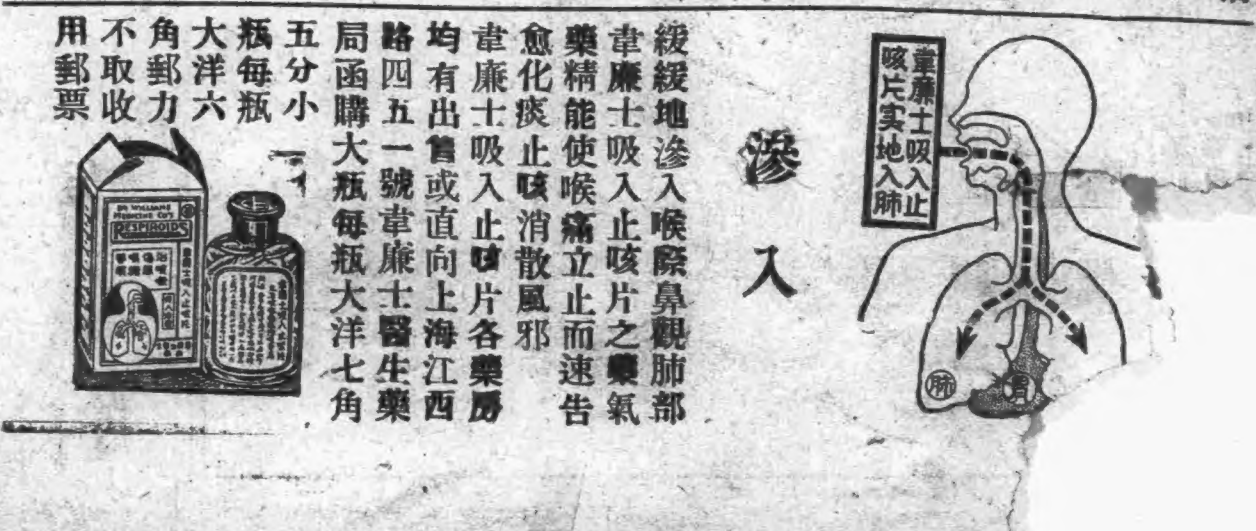 韋廉士吸入止
咳片实地入肺
肺
胃
滲入
緩緩地滲入喉際鼻觀肺部
韋廉士吸入止咳片之藥氣
藥精能使喉痛立止而速告
愈化痰止咳消散風邪
韋廉士吸入止咳片各藥房
均有出售或直向上海江西
路四五一號韋廉士醫生藥
局函購大瓶每瓶大洋七角
五分小
瓶每瓶
大洋六
角郵力
不取收
用郵票
DR WILLIAMS
MEDICINE CO'S
RESPIROIDS
韋廉士吸入止咳片